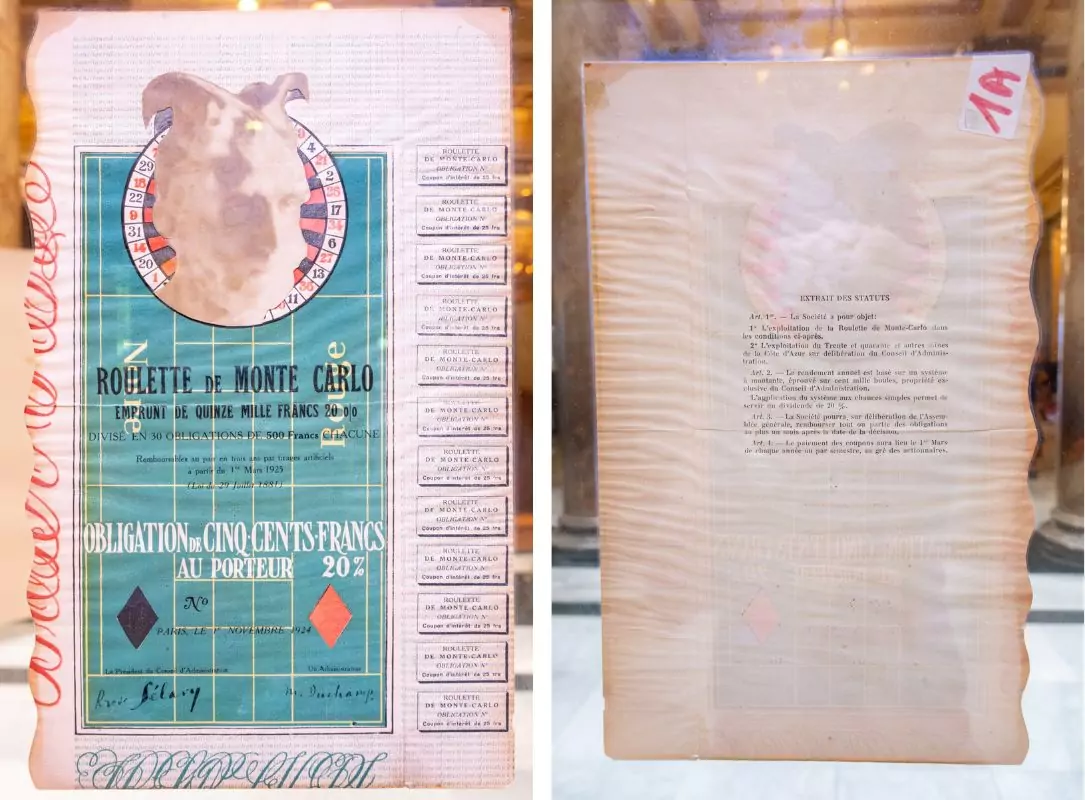 29
16
22
9
31
14
20
1
9
4
21
2
25
17
34
6
27
13
36
11
ROULETTE DE MONTE CARLO
EMPRUNT DE QUINZE MILLE FRANCS 20 o/o
DIVISÉ EN 30 OBLIGATIONS DE 500 Francs CHACUNE
Remboursables au pair en trois ans par tirages artificiels
à partir du 1er Mars 1925
(Loi du 29 Juillet 1881)
OBLIGATION DE CINQ-CENTS-FRANCS
AU PORTEUR 20%
No
PARIS, LE 1er NOVEMBRE 1924
Le Président du Conseil d'Administration
Un Administrateur
Rrose Sélavy
M. Duchamp
Rue
ROULETTE
DE MONTE-CARLO
OBLIGATION No
Coupon d'intérêt de 25 frs
ROULETTE
DE MONTE-CARLO
OBLIGATION No
Coupon d'intérêt de 25 frs
ROULETTE
DE MONTE-CARLO
OBLIGATION No
Coupon d'intérêt de 25 frs
ROULETTE
DE MONTE-CARLO
OBLIGATION No
Coupon d'intérêt de 25 frs
ROULETTE
DE MONTE-CARLO
OBLIGATION No
Coupon d'intérêt de 25 frs
ROULETTE
DE MONTE-CARLO
OBLIGATION No
Coupon d'intérêt de 25 frs
ROULETTE
DE MONTE-CARLO
OBLIGATION No
Coupon d'intérêt de 25 frs
ROULETTE
DE MONTE-CARLO
OBLIGATION No
Coupon d'intérêt de 25 frs
ROULETTE
DE MONTE-CARLO
OBLIGATION No
Coupon d'intérêt de 25 frs
ROULETTE
DE MONTE-CARLO
OBLIGATION No
Coupon d'intérêt de 25 frs
ROULETTE
DE MONTE-CARLO
OBLIGATION No
Coupon d'intérêt de 25 frs
ROULETTE
DE MONTE-CARLO
OBLIGATION No
Coupon d'intérêt de 25 frs
1A
EXTRAIT DES STATUTS
Art. 1er. — La Société a pour objet:
1° L'exploitation de la Roulette de Monte-Carlo dans
les conditions ci-après.
2° L'exploitation du Trente et quarante et autres mines
de la Côte d'Azur sur délibération du Conseil d'Adminis-
tration.
Art. 2. — Le rendement annuel est basé sur un système
à montante, éprouvé sur cent mille boules, propriété ex-
clusive du Conseil d'Administration.
L'application du système aux chances simples permet de
servir du dividende de 20 %.
Art. 3. — La Société pourra, sur délibération de l'Assem-
blée générale, rembourser tout ou partie des obligations
au plus un mois après la date de la décision.
Art. 4. — Le paiement des coupons aura lieu le 1er Mars
de chaque année ou par semestre, au gré des actionnaires.